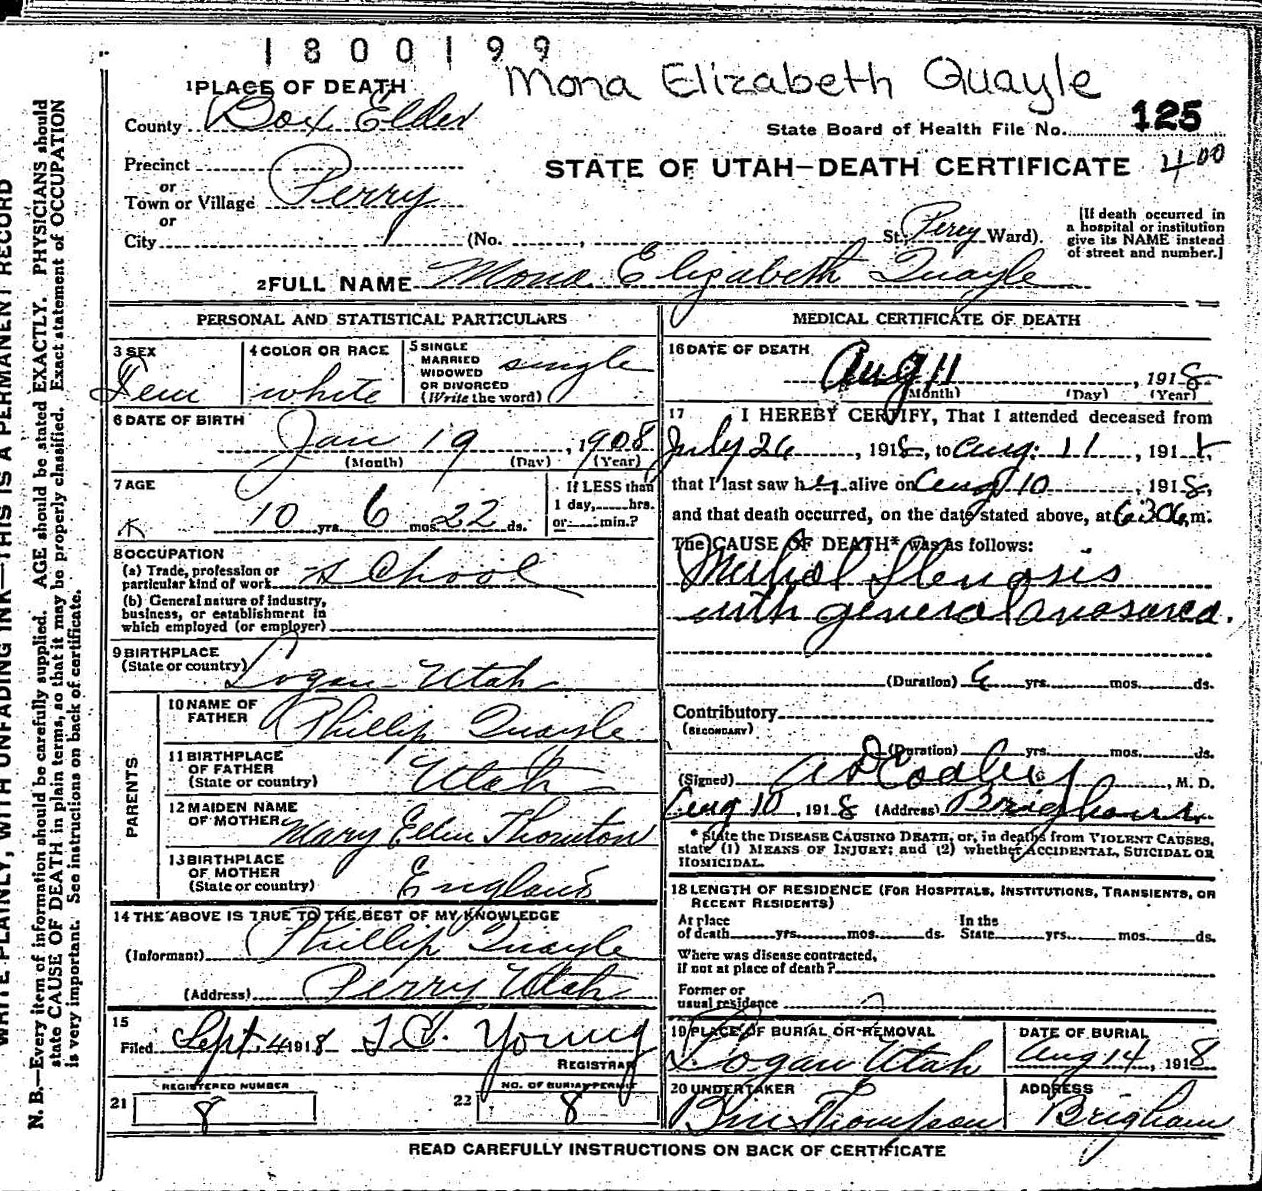 1800199
Mona Elizabeth Quayle
1 PLACE OF DEATH
County Box Elder
State Board of Health File No. 125
Precinct
STATE OF UTAH—DEATH CERTIFICATE 400
or
Town or Village Perry
or
City (No. , St. Perry Ward)
[If death occurred in
a hospital or institution
give its NAME instead
of street and number.]
2 FULL NAME Mona Elizabeth Quayle
PERSONAL AND STATISTICAL PARTICULARS
3 SEX Fem
4 COLOR OR RACE white
5 SINGLE
MARRIED
WIDOWED
OR DIVORCED
(Write the word) single
6 DATE OF BIRTH
Jan 19, 1908
(Month) (Day) (Year)
7 AGE
10 yrs. 6 mos. 22 ds.
If LESS than
1 day, hrs.
or min.?
8 OCCUPATION
(a) Trade, profession or
particular kind of work school
(b) General nature of industry,
business, or establishment in
which employed (or employer)
9 BIRTHPLACE
(State or country) Logan Utah
PARENTS
10 NAME OF
FATHER Phillip Quayle
11 BIRTHPLACE
OF FATHER
(State or country) Utah
12 MAIDEN NAME
OF MOTHER Mary Ellen Thornton
13 BIRTHPLACE
OF MOTHER
(State or country) England
14 THE ABOVE IS TRUE TO THE BEST OF MY KNOWLEDGE
(Informant) Phillip Quayle
(Address) Perry Utah
15
Filed Sept. 4 1918
REGISTRAR Young
REGISTERED NUMBER
21 8
NO. OF BURIAL PERMIT
22 8
MEDICAL CERTIFICATE OF DEATH
16 DATE OF DEATH
Aug 11, 1918
(Month) (Day) (Year)
17 I HEREBY CERTIFY, That I attended deceased from
July 26, 1918, to Aug. 11, 191
that I last saw her alive on Aug 10, 1918,
and that death occurred, on the date stated above, at 630 a m.
The CAUSE OF DEATH* was as follows:
Mitral Stenosis
with general anasarca.
(Duration) yrs. mos. ds.
Contributory
(SECONDARY)
(Duration) yrs. mos. ds.
(Signed) , M. D.
Aug 10, 1918 (Address) Brigham
* State the DISEASE CAUSING DEATH, or, in deaths from VIOLENT CAUSES,
state (1) MEANS OF INJURY; and (2) whether ACCIDENTAL, SUICIDAL OR
HOMICIDAL.
18 LENGTH OF RESIDENCE (FOR HOSPITALS, INSTITUTIONS, TRANSIENTS, OR
RECENT RESIDENTS)
At place
of death yrs. mos. ds.
In the
State yrs. mos. ds.
Where was disease contracted,
if not at place of death?
Former or
usual residence
19 PLACE OF BURIAL OR REMOVAL
Logan Utah
DATE OF BURIAL
Aug 14, 1918
20 UNDERTAKER
Thompson
ADDRESS
Brigham
READ CAREFULLY INSTRUCTIONS ON BACK OF CERTIFICATE
WRITE PLAINLY, WITH UNFADING INK—THIS IS A PERMANENT RECORD
N. B.—Every item of information should be carefully supplied. AGE should be stated EXACTLY. PHYSICIANS should
state CAUSE OF DEATH in plain terms, so that it may be properly classified. Exact statement of OCCUPATION
is very important. See instructions on back of certificate.